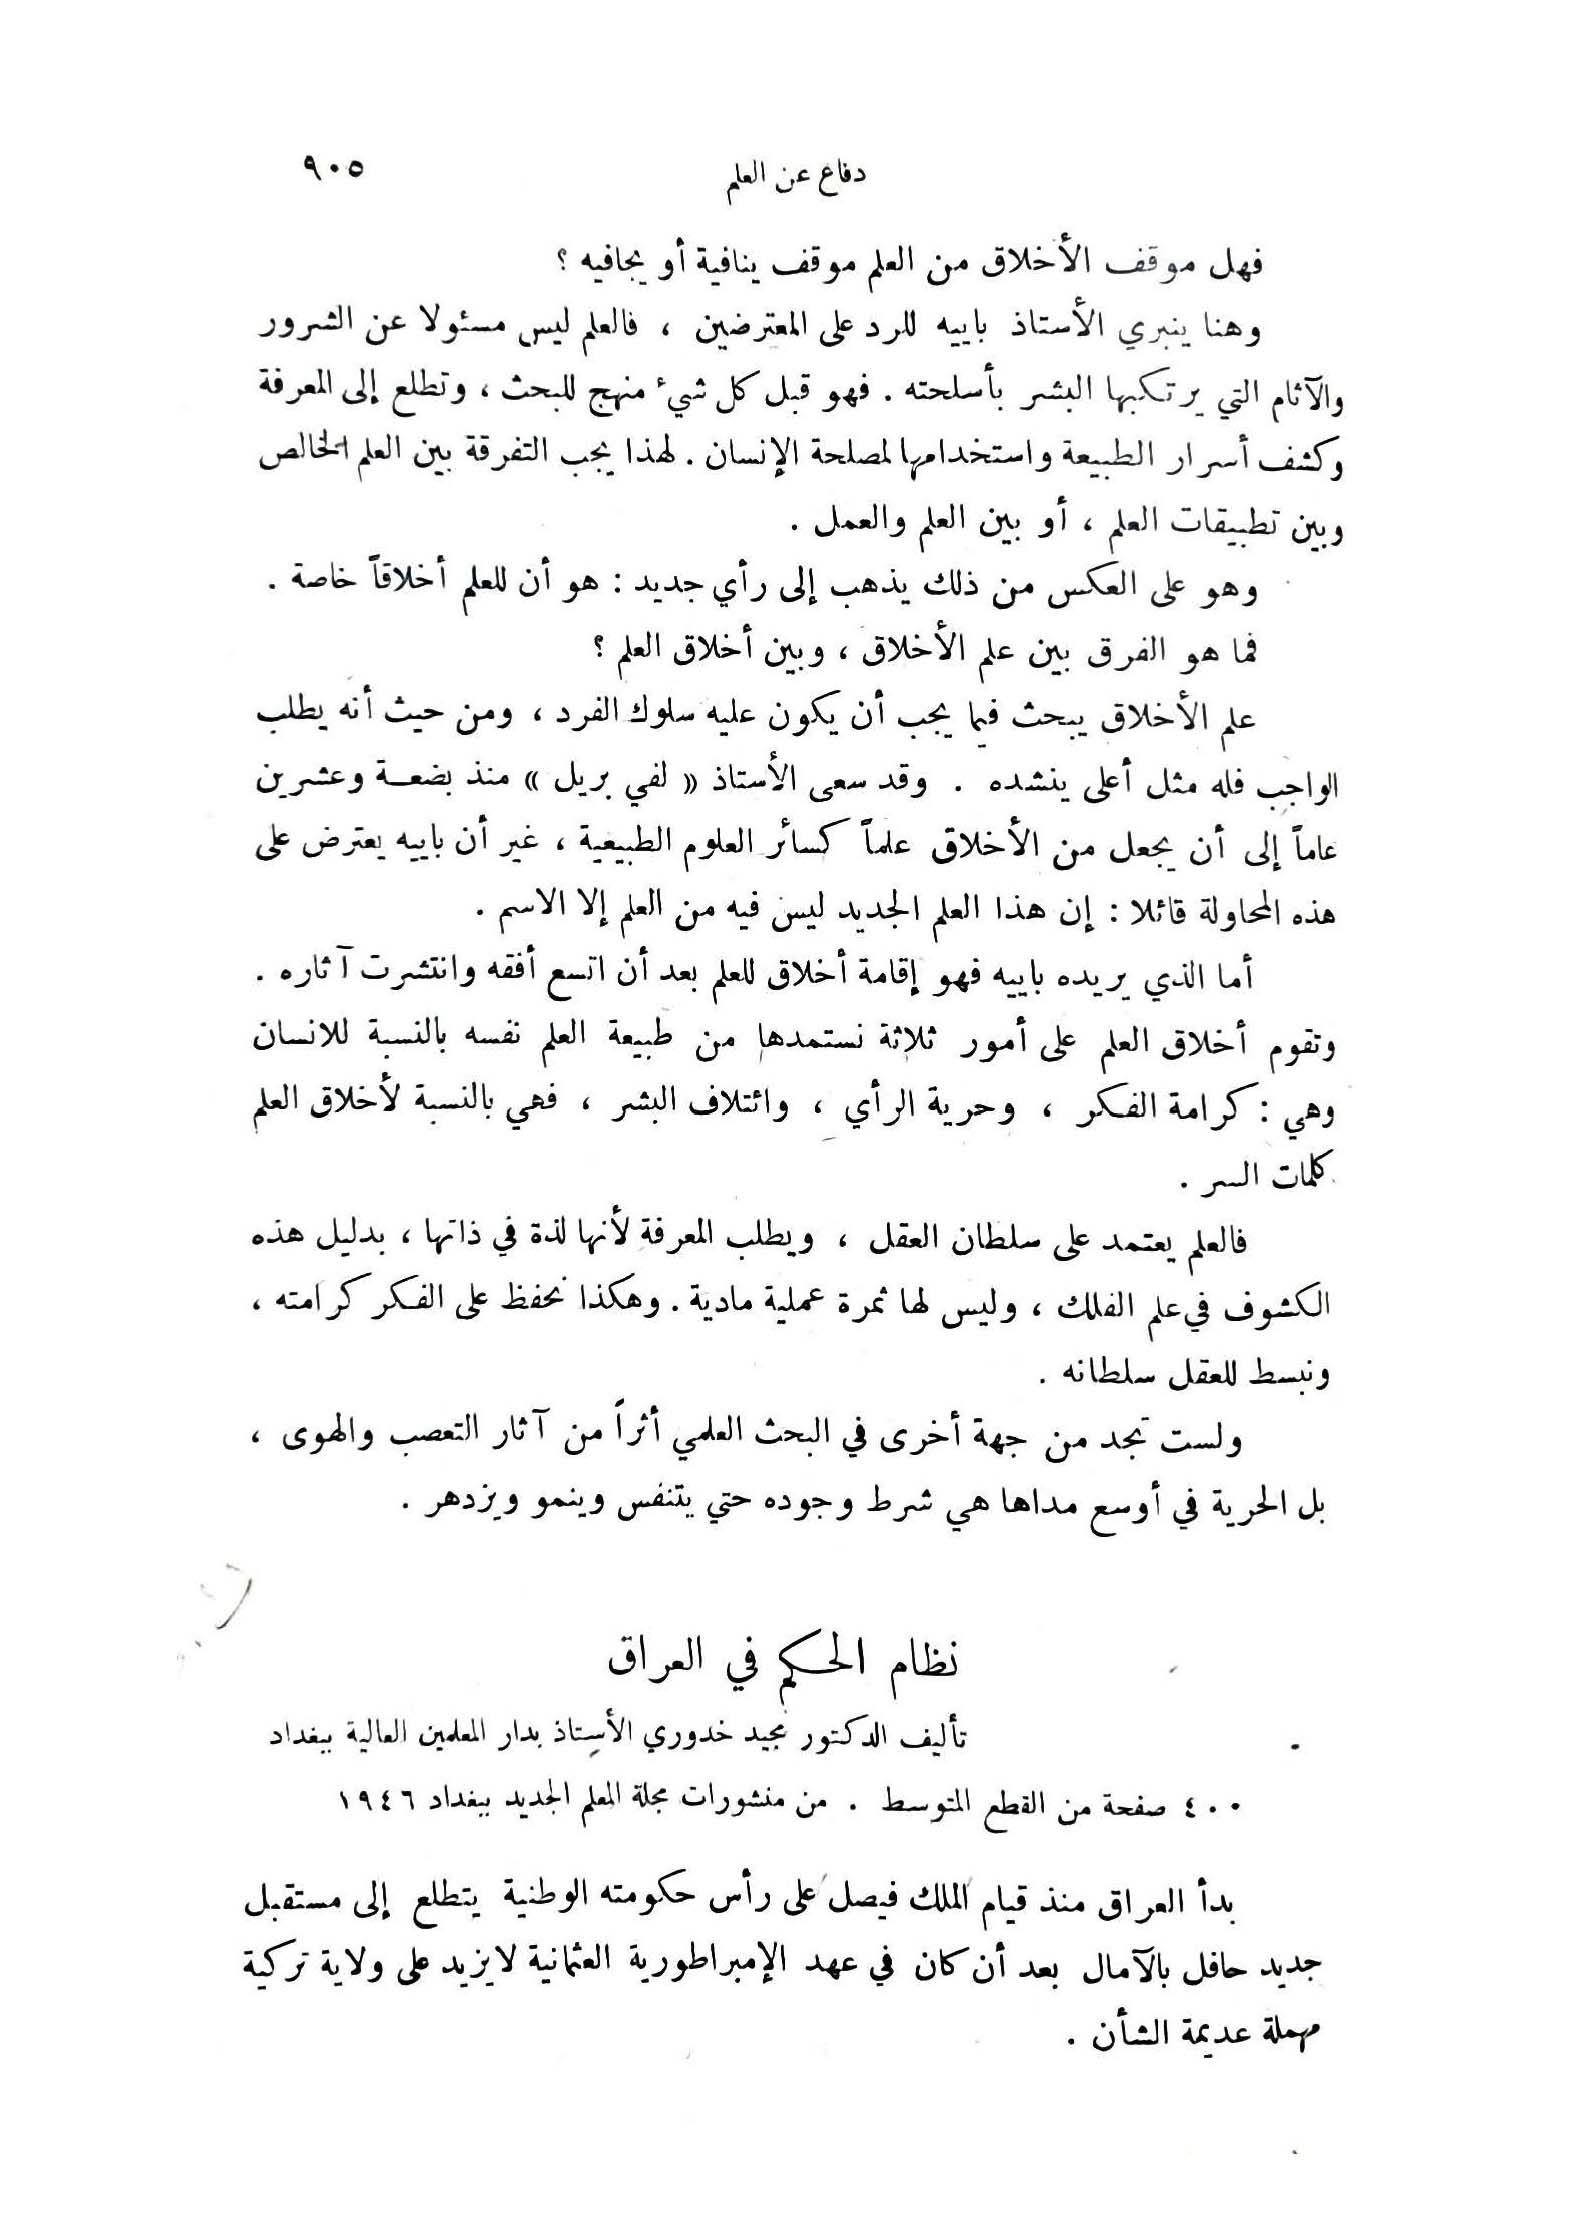 دفاع عن العلم ٩٠٥
فهل موقف الأخلاق من العلم موقف ينافية أو يجافيه ؟
وهنا ينبري الأستاذ باييه للرد على المعترضين ، فالعلم ليس مسئولا عن الشرور
والآثام التي يرتكبها البشر بأسلحته . فهو قبل كل شيء منهج للبحث ، وتطلع إلى المعرفة
وكشف أسرار الطبيعة واستخدامها لمصلحة الإنسان . لهذا يجب التفرقة بين العلم الخالص
وبين تطبيقات العلم ، أو بين العلم والعمل .
وهو على العكس من ذلك يذهب إلى رأي جديد : هو أن للعلم أخلاقاً خاصة .
فما هو الفرق بين علم الأخلاق ، وبين أخلاق العلم ؟
علم الأخلاق يبحث فيما يجب أن يكون عليه سلوك الفرد ، ومن حيث أنه يطلب
الواجب فله مثل أعلى ينشده . وقد سعى الأستاذ « لفي بريل » منذ بضعة وعشرين
عاماً إلى أن يجعل من الأخلاق علماً كسائر العلوم الطبيعية ، غير أن باييه يعترض على
هذه المحاولة قائلا : إن هذا العلم الجديد ليس فيه من العلم إلا الاسم .
أما الذي يريده باييه فهو إقامة أخلاق للعلم بعد أن اتسع أفقه وانتشرت آثاره .
وتقوم أخلاق العلم على أمور ثلاثة نستمدها من طبيعة العلم نفسه بالنسبة للانسان
وهي : كرامة الفكر ، وحرية الرأي ، وائتلاف البشر ، فهي بالنسبة لأخلاق العلم
كلمات السر .
فالعلم يعتمد على سلطان العقل ، ويطلب المعرفة لأنها لذة في ذاتها ، بدليل هذه
الكشوف في علم الفلك ، وليس لها ثمرة عملية مادية . وهكذا نحفظ على الفكر كرامته ،
ونبسط للعقل سلطانه .
ولست تجد من جهة أخرى في البحث العلمي أثراً من آثار التعصب والهوى ،
بل الحرية في أوسع مداها هي شرط وجوده حتي يتنفس وينمو ويزدهر .
نظام الحكم في العراق
تأليف الدكتور مجيد خدوري الأستاذ بدار المعلمين العالية ببغداد
٤٠٠ صفحة من القطع المتوسط . من منشورات مجلة المعلم الجديد ببغداد ١٩٤٦
بدأ العراق منذ قيام الملك فيصل على رأس حكومته الوطنية يتطلع إلى مستقبل
جديد حافل بالآمال بعد أن كان في عهد الإمبراطورية العثمانية لا يزيد على ولاية تركية
مهملة عديمة الشأن .